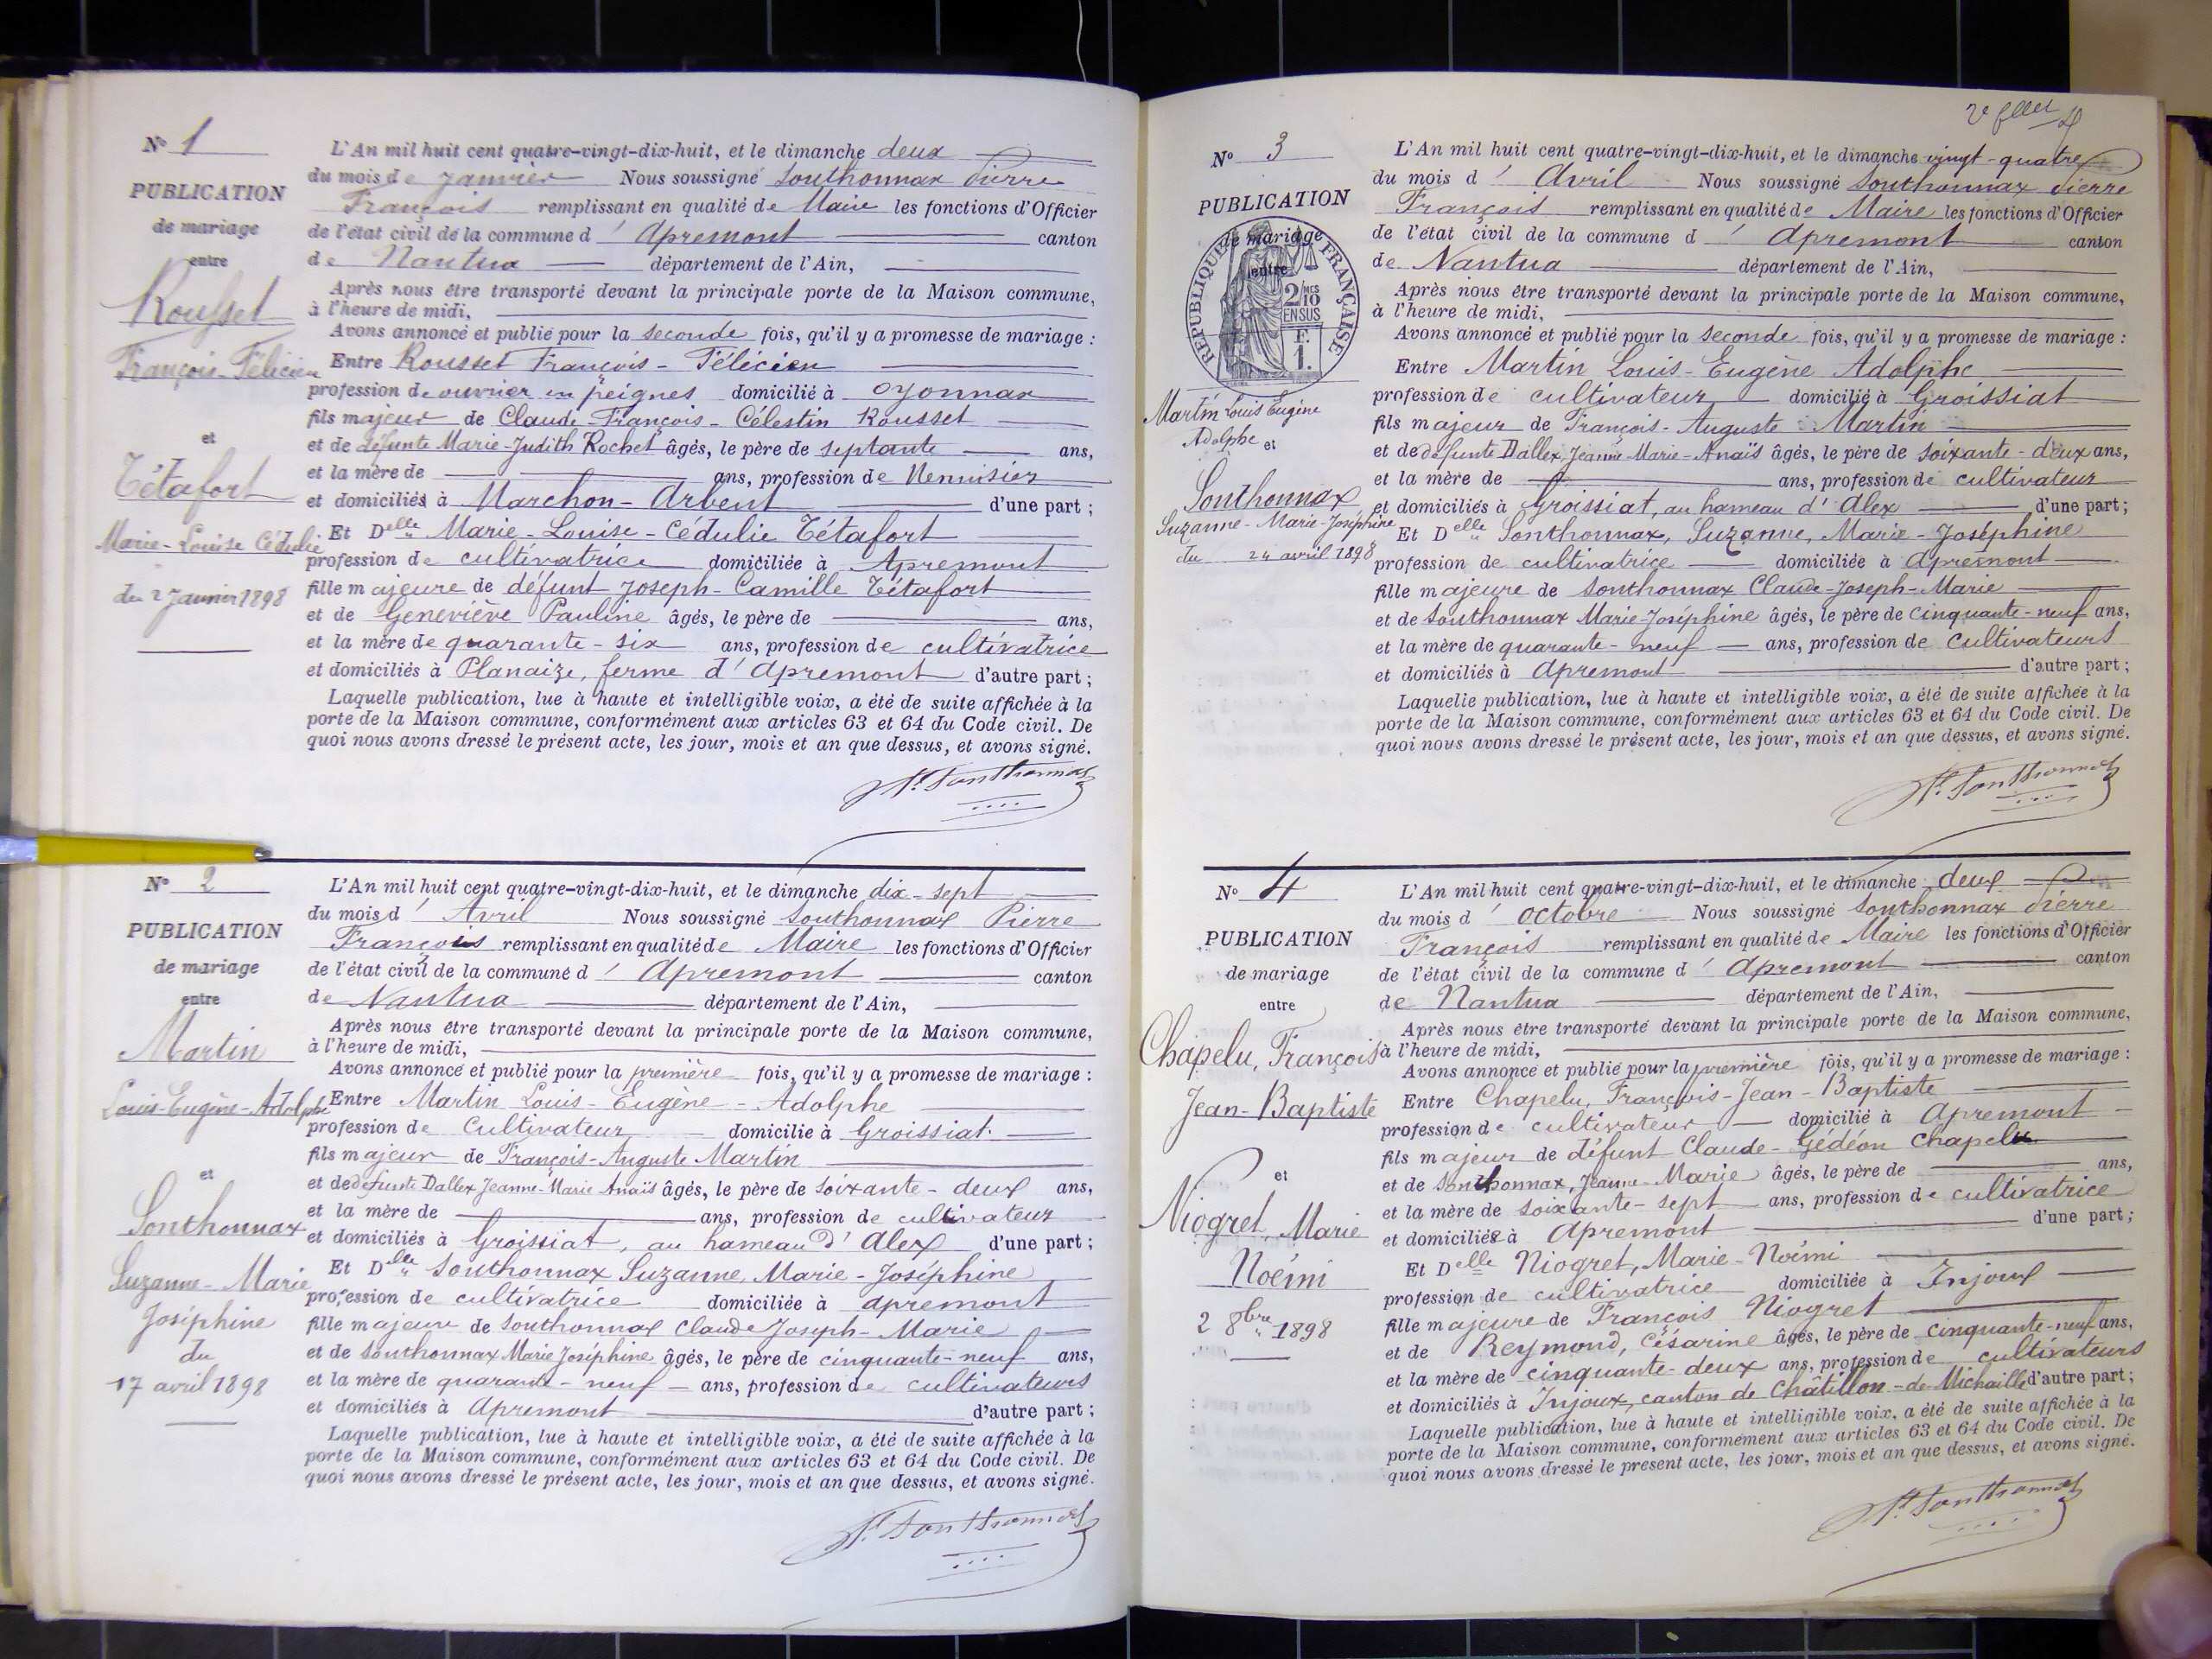 N° 1
PUBLICATION
de mariage
entre
Rousset
François-Félicien
et
Tétafort
Marie-Louise Cédulie
du 2 Janvier 1898
L'An mil huit cent quatre-vingt-dix-huit, et le dimanche deux
du mois de Janvier Nous soussigné Southonnax Pierre
François remplissant en qualité de Maire les fonctions d'Officier
de l'état civil de la commune d' Apremont canton
de Nantua département de l'Ain,
Après nous être transporté devant la principale porte de la Maison commune,
à l'heure de midi,
Avons annoncé et publié pour la seconde fois, qu'il y a promesse de mariage :
Entre Rousset François-Félicien
profession de ouvrier en peignes domicilié à Oyonnax
fils majeur de Claude-François-Célestin Rousset
et de défunte Marie-Judith Rochet âgés, le père de septante ans,
et la mère de ans, profession de Menuisier
et domiciliés à Marchon-Arbent d'une part ;
Et Delle Marie-Louise-Cédulie Tétafort
profession de cultivatrice domiciliée à Apremont
fille majeure de défunt Joseph-Camille Tétafort
et de Geneviève Pauline âgés, le père de ans,
et la mère de quarante-six ans, profession de cultivatrice
et domiciliés à Planaize, ferme d'Apremont d'autre part ;
Laquelle publication, lue à haute et intelligible voix, a été de suite affichée à la
porte de la Maison commune, conformément aux articles 63 et 64 du Code civil. De
quoi nous avons dressé le présent acte, les jour, mois et an que dessus, et avons signé.
P. Southonnax
N° 2
PUBLICATION
de mariage
entre
Martin
Louis-Eugène-Adolphe
et
Southonnax
Suzanne-Marie
Joséphine
du
17 avril 1898
L'An mil huit cent quatre-vingt-dix-huit, et le dimanche dix-sept
du mois d' Avril Nous soussigné Southonnax Pierre
François remplissant en qualité de Maire les fonctions d'Officier
de l'état civil de la commune d' Apremont canton
de Nantua département de l'Ain,
Après nous être transporté devant la principale porte de la Maison commune,
à l'heure de midi,
Avons annoncé et publié pour la première fois, qu'il y a promesse de mariage :
Entre Martin Louis-Eugène-Adolphe
profession de Cultivateur domicilié à Groissiat
fils majeur de François-Auguste Martin
et de défunte Dallex Jeanne-Marie Anaïs âgés, le père de soixante-deux ans,
et la mère de ans, profession de cultivateur
et domiciliés à Groissiat, au hameau d'Alex d'une part ;
Et Delle Southonnax Suzanne, Marie-Joséphine
profession de cultivatrice domiciliée à Apremont
fille majeure de Southonnax Claude Joseph-Marie
et de Southonnax Marie Joséphine âgés, le père de cinquante-neuf ans,
et la mère de quarante-neuf ans, profession de cultivateurs
et domiciliés à Apremont d'autre part ;
Laquelle publication, lue à haute et intelligible voix, a été de suite affichée à la
porte de la Maison commune, conformément aux articles 63 et 64 du Code civil. De
quoi nous avons dressé le présent acte, les jour, mois et an que dessus, et avons signé.
P. Southonnax
N° 3
PUBLICATION
de mariage
entre
RÉPUBLIQUE FRANÇAISE
2/10
EN SUS
F.
1.
Martin Louis Eugène
Adolphe et
Southonnax
Suzanne-Marie-Joséphine
du 24 avril 1898
L'An mil huit cent quatre-vingt-dix-huit, et le dimanche vingt-quatre
du mois d' Avril Nous soussigné Southonnax Pierre
François remplissant en qualité de Maire les fonctions d'Officier
de l'état civil de la commune d' Apremont canton
de Nantua département de l'Ain,
Après nous être transporté devant la principale porte de la Maison commune,
à l'heure de midi,
Avons annoncé et publié pour la seconde fois, qu'il y a promesse de mariage :
Entre Martin Louis-Eugène Adolphe
profession de cultivateur domicilié à Groissiat
fils majeur de François-Auguste Martin
et de défunte Dallex, Jeanne-Marie-Anaïs âgés, le père de soixante-deux ans,
et la mère de ans, profession de cultivateur
et domiciliés à Groissiat, au hameau d'Alex d'une part ;
Et Delle Southonnax, Suzanne, Marie-Joséphine
profession de cultivatrice domiciliée à Apremont
fille majeure de Southonnax Claude-Joseph-Marie
et de Southonnax Marie-Joséphine âgés, le père de cinquante-neuf ans,
et la mère de quarante-neuf ans, profession de cultivateurs
et domiciliés à Apremont d'autre part ;
Laquelle publication, lue à haute et intelligible voix, a été de suite affichée à la
porte de la Maison commune, conformément aux articles 63 et 64 du Code civil. De
quoi nous avons dressé le présent acte, les jour, mois et an que dessus, et avons signé.
P. Southonnax
N° 4
PUBLICATION
de mariage
entre
Chapelu, François
Jean-Baptiste
et
Niogret, Marie
Noémi
2 8bre 1898
L'An mil huit cent quatre-vingt-dix-huit, et le dimanche deux
du mois d' octobre Nous soussigné Southonnax Pierre
François remplissant en qualité de Maire les fonctions d'Officier
de l'état civil de la commune d' Apremont canton
de Nantua département de l'Ain,
Après nous être transporté devant la principale porte de la Maison commune,
à l'heure de midi,
Avons annoncé et publié pour la première fois, qu'il y a promesse de mariage :
Entre Chapelu, François-Jean-Baptiste
profession de cultivateur domicilié à Apremont
fils majeur de défunt Claude-Gédéon Chapelu
et de Southonnax, Jeanne Marie âgés, le père de ans,
et la mère de soixante-sept ans, profession de cultivatrice
et domiciliés à Apremont d'une part ;
Et Delle Niogret, Marie-Noémi
profession de cultivatrice domiciliée à Injoux
fille majeure de François Niogret
et de Reymond, Césarine âgés, le père de cinquante-neuf ans,
et la mère de cinquante-deux ans, profession de cultivateurs
et domiciliés à Injoux, canton de Châtillon-de-Michaille d'autre part ;
Laquelle publication, lue à haute et intelligible voix, a été de suite affichée à la
porte de la Maison commune, conformément aux articles 63 et 64 du Code civil. De
quoi nous avons dressé le présent acte, les jour, mois et an que dessus, et avons signé.
P. Southonnax